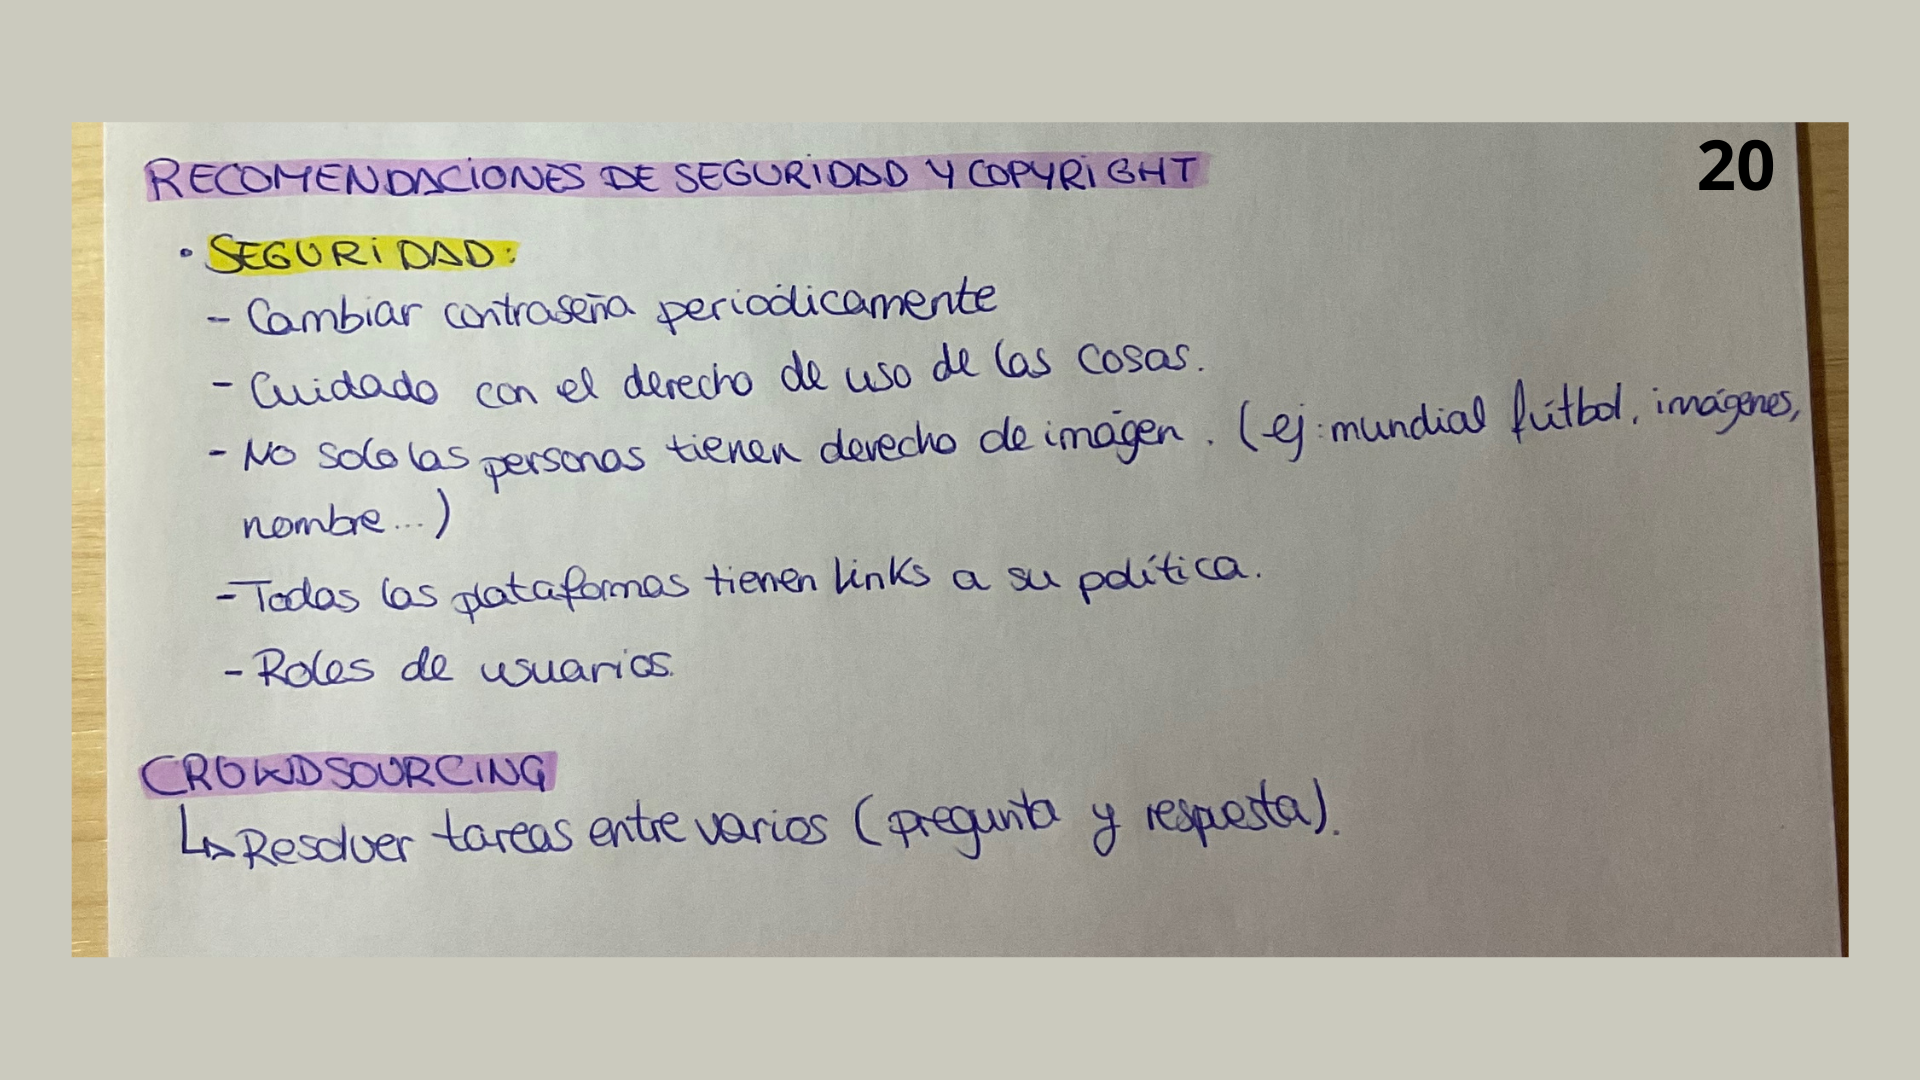 20
RECOMENDACIONES DE SEGURIDAD Y COPYRIGHT
• SEGURIDAD:
- Cambiar contraseña periódicamente
- Cuidado con el derecho de uso de las cosas.
- No solo las personas tienen derecho de imágen. (ej: mundial fútbol, imágenes,
nombre...)
- Todas las plataformas tienen links a su política.
- Roles de usuarios.
CROWDSOURCING
↳ Resolver tareas entre varios (pregunta y respuesta).